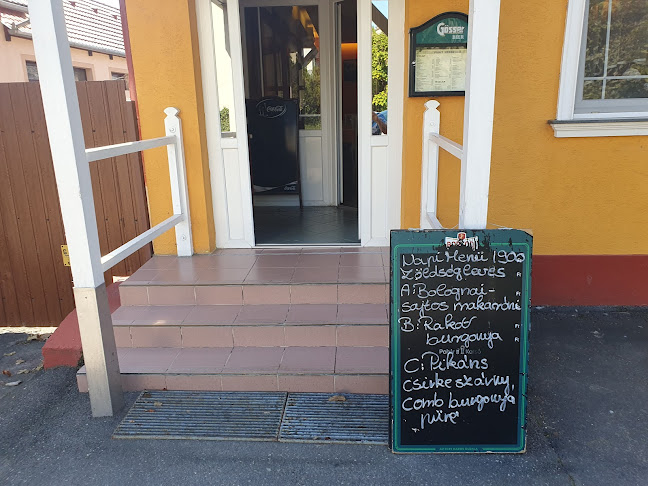 Gösser
BIER
Coca-Cola
Napi Menü 1900
Zöldségleves
A: Bolognai-
sajtos makaróni
B: Rakott
burgonya
C: Pikáns
csirke szárny,
comb burgonya
püré